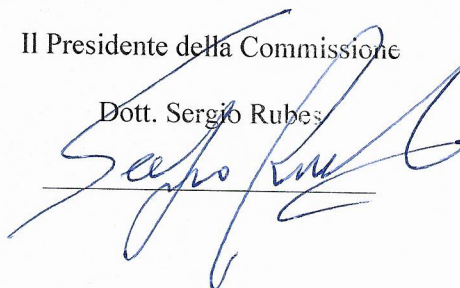 Il Presidente della Commissione
Dott. Sergio Rubes